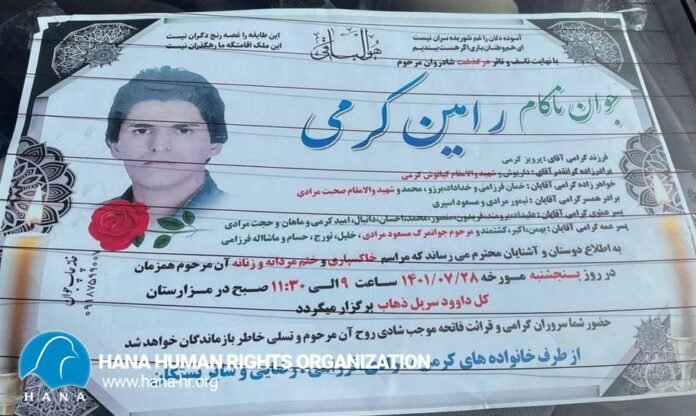 آسوده دلان را غم شوریده سران نیست
این طایفه را غصه رنج دگران نیست
ای هموطنان باری اگر هست ببندیم
این ملک اقامتگه ما رهگذران نیست
هوالباقی
با نهایت تاسف و تاثر درگذشت شادروان مرحوم
جوان ناکام رامین کرمی
فرزند گرامی آقای: پرویز کرمی
برادرزاده گرانقدر آقای: داریوش و شهید والامقام کیانوش کرمی
خواهرزاده گرامی آقایان: خمان فرزامی و خداداد، برزو، محمد و شهید والامقام صحبت مرادی
برادر همسر گرامی آقایان: تیمور مرادی و مسعود اسپری
پسر عموی گرامی آقایان: علیداد، برومند، فریدون، منصور، محمد، احسان، دانیال، امید کرمی و ماهان و حجت مرادی
پسر عمه گرامی آقایان: بهمن، اکبر، گشتمند و مرحوم جوانمرگ مسعود مرادی، خلیل، تورج، حسام و ماشااله فرزامی
به اطلاع دوستان و آشنایان محترم می رساند که مراسم خاکسپاری و ختم مردانه و زنانه آن مرحوم همزمان
در روز پنجشنبه مورخه ۱۴۰۱/۰۷/۲۸ ساعت ۹ الی ۱۱:۳۰ صبح در مزارستان
گل داوود سرپل ذهاب برگزار میگردد
حضور شما سروران گرامی و قرائت فاتحه موجب شادی روح آن مرحوم و تسلی خاطر بازماندگان خواهد شد
از طرف خانواده های کرمی رضایی و سایر بستگان
HANA HUMAN RIGHTS ORGANIZATION
www.hana-hr.org
HANA